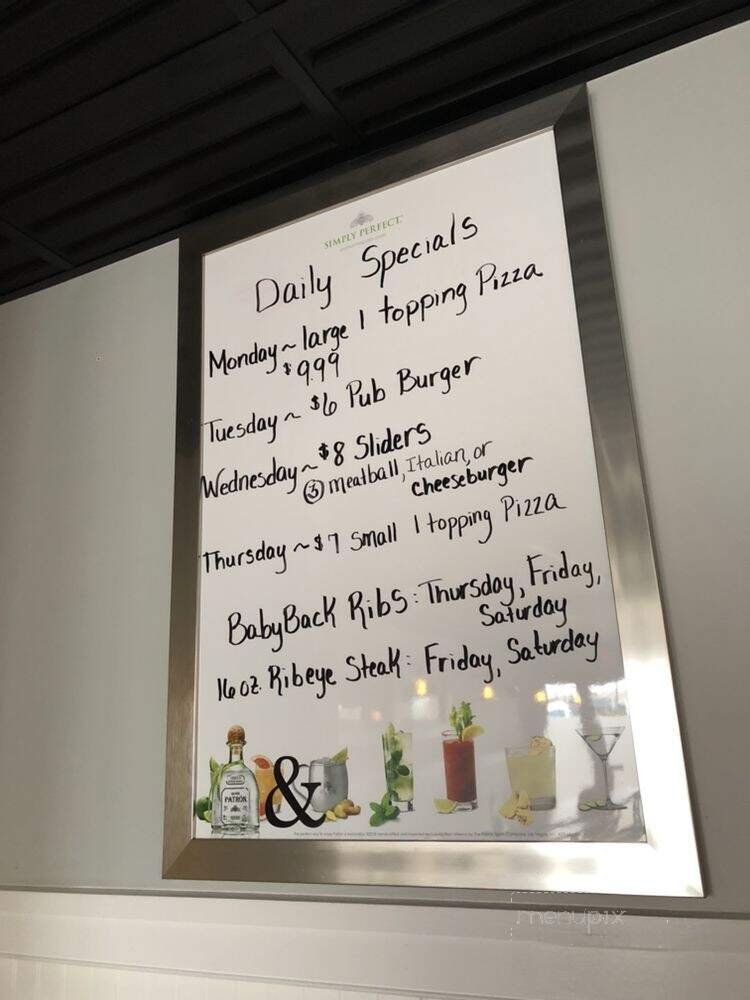 SIMPLY PERFECT.
Daily Specials
Monday ~ large 1 topping Pizza
$9.99
Tuesday ~ $6 Pub Burger
Wednesday ~ $8 Sliders
③ meatball, Italian, or
cheeseburger
Thursday ~ $7 small 1 topping Pizza
BabyBack Ribs: Thursday, Friday,
Saturday
16 oz. Ribeye Steak: Friday, Saturday
&
PATRÓN
menupix